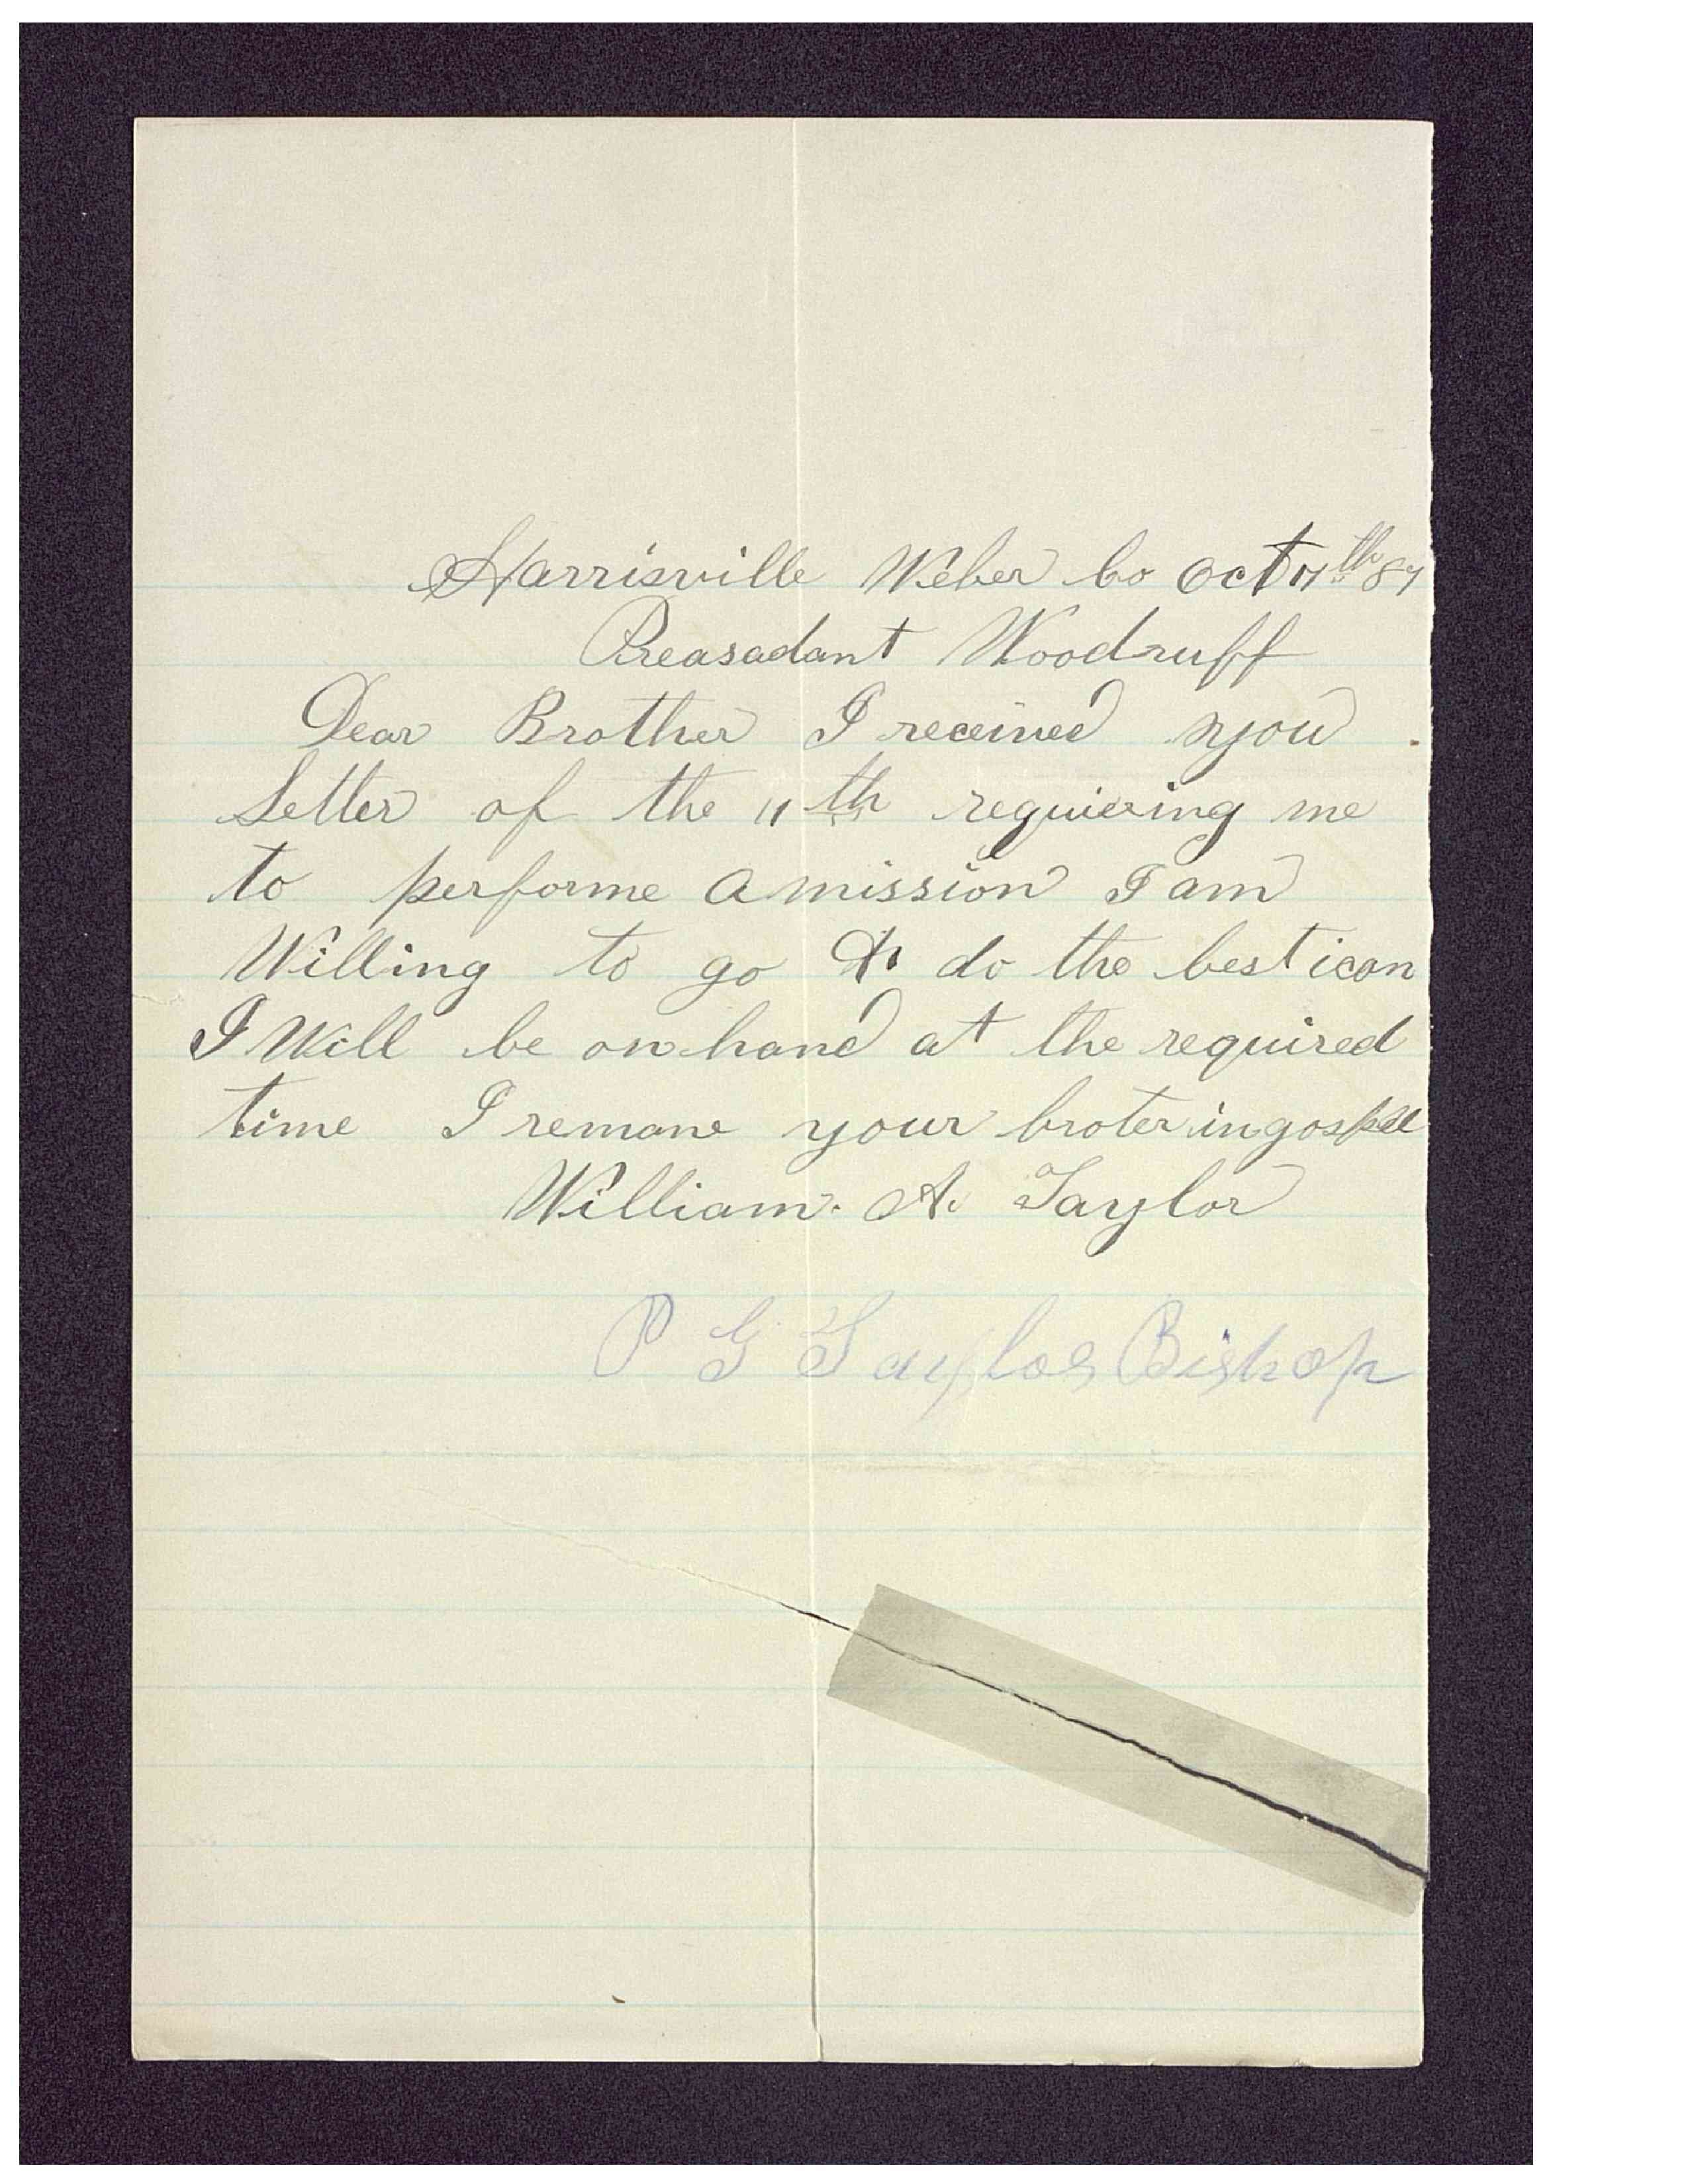 Harrisville Weber Co Oct 17th 87
Preasadant Woodruff
Dear Brother I received you
Letter of the 11th requiering me
to performe a mission I am
Willing to go & do the best ican
I Will be on hand at the required
time I remane your broter in gospel
William. A. Taylor
P G Taylor Bishop